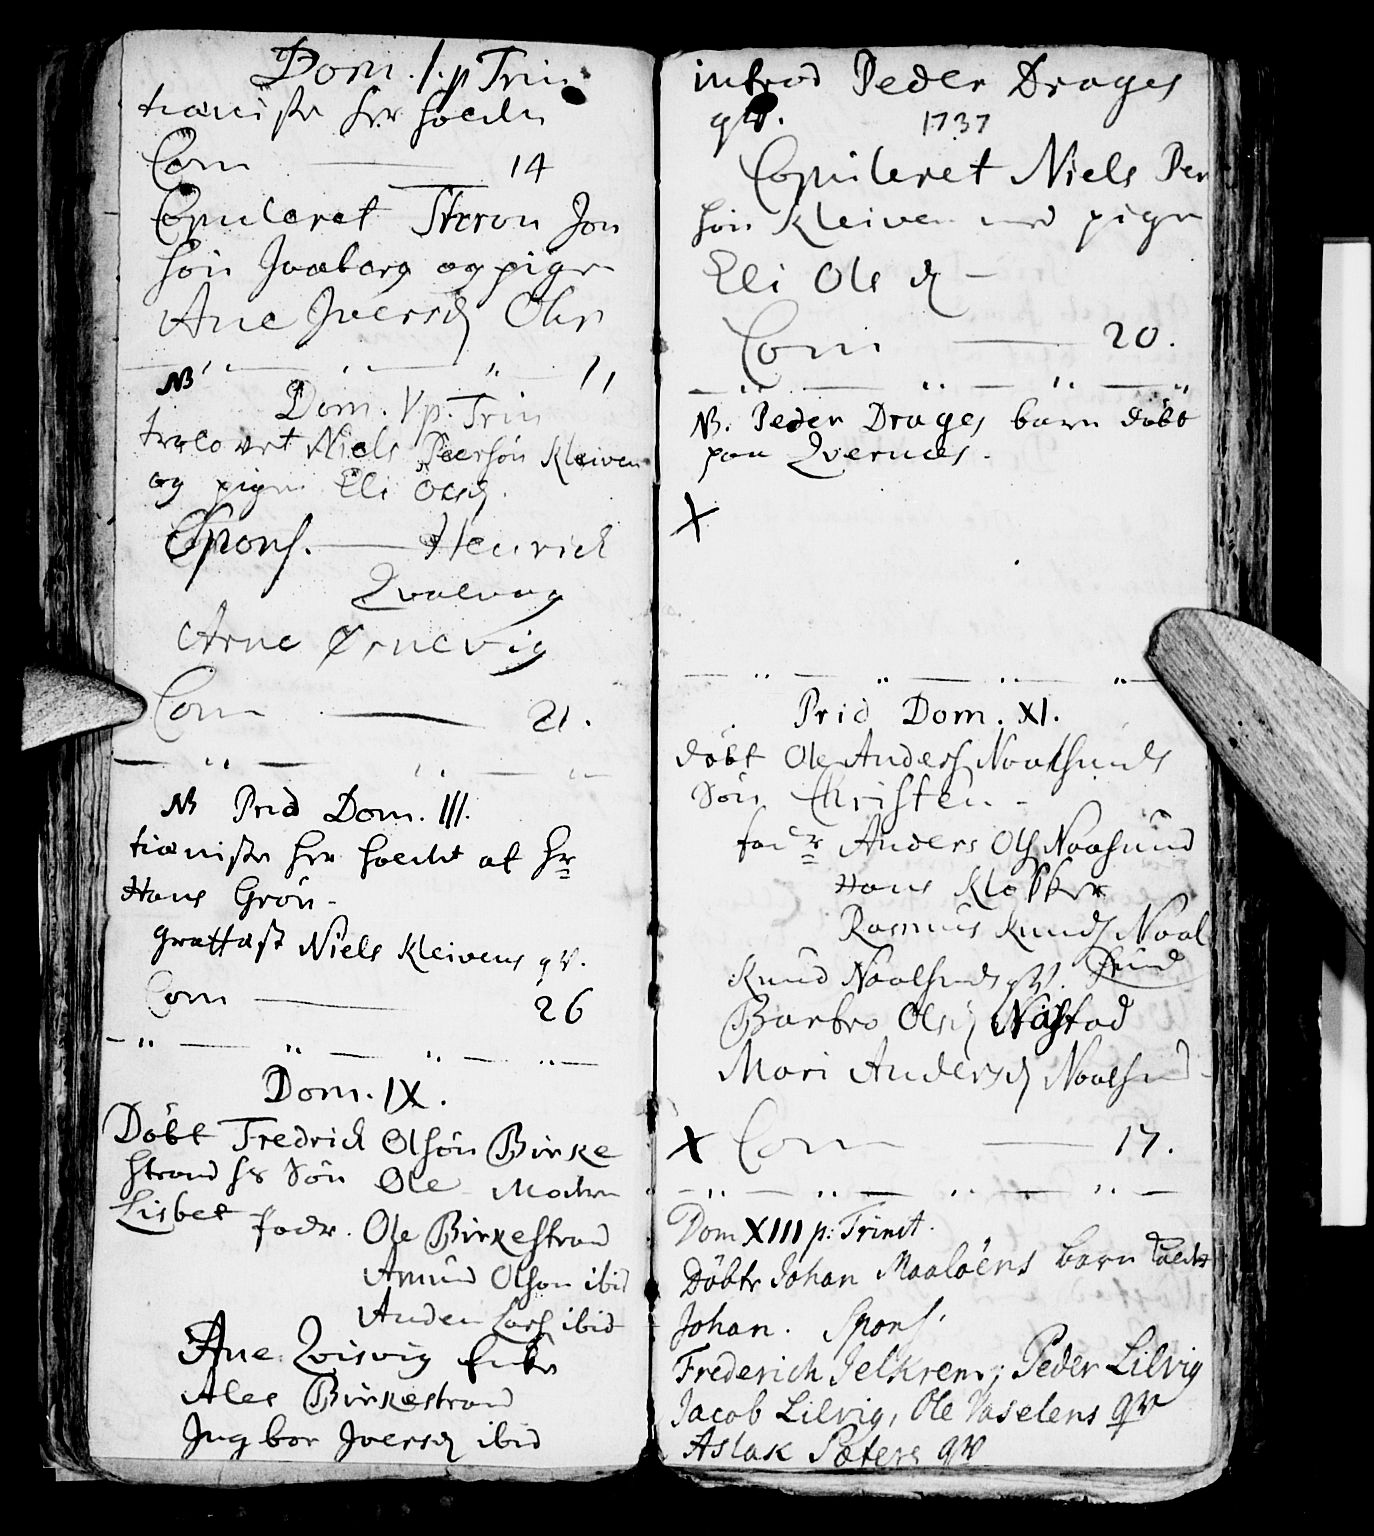 Dom. 1. p Trin
tieniste her holdn
Com 14
Copuleret Steron Jon
søn Jvaberg og pigen
Ane Jversd Olsr
NB 11
Dom. V p. Trin
trolovet Niels Peersøn Kleiven
og pigen Eli Olsd.
Spons. Henrich
Qvalvog
Arne Ørnevig
Com 21.
NB Prid Dom. III.
tieniste her holdet af Hr
Hans Grön -
graattast Niels Kleivens qv.
Com 26
Dom. IX.
Döbt Fredrich Olsøn Birke
strand hs Søn Ole Modren
Lisbet fadr. Ole Birkestrand
Amund Olson ibid
Anders Lars ibid
Ane Qvisvig Enke
Ales Birkestrand
Jngbor Jversd ibid
introd Peder Drages
qv. 1737
Copuleret Niels Per
søn Kleiven med pigen
Eli Ols d -
Com 20.
NB. Peder Drages barn döbt
paa Qvernæs.
X
Prid Dom. XI.
döbt Ole Anders Naalsunds
Søn Christen -
fadr Anders Ols Naasund
Hans Klokker
Rasmus Knuds Naal
sund
Knud Naalsunds qv.
Barbro Olsd Nästad
Mari Andersd Naalsund
X Com 17.
Dom XIII p: Trinit.
Döbtr Johan Maalöens barn kaldt
Johan. Spons.
Frederich Jelkrem; Peder Lilvig
Jacob Lilvig, Ole Vaselens qv
Aslak Sæters qv